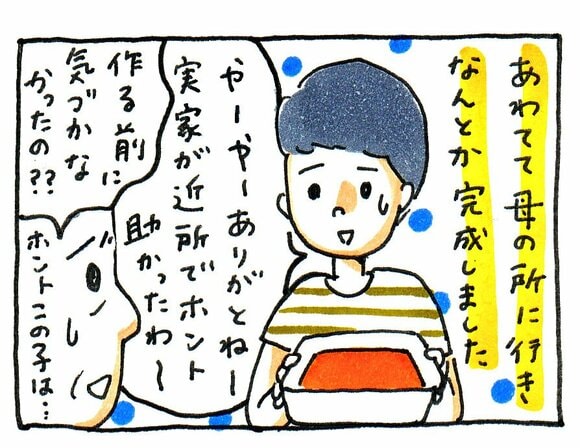 あわてて母の所に行き
なんとか完成しました
やーやーありがとねー
実家が近所でホント
助かったわ〜
作る前に
気づかな
かったの??
ホントこの子は…